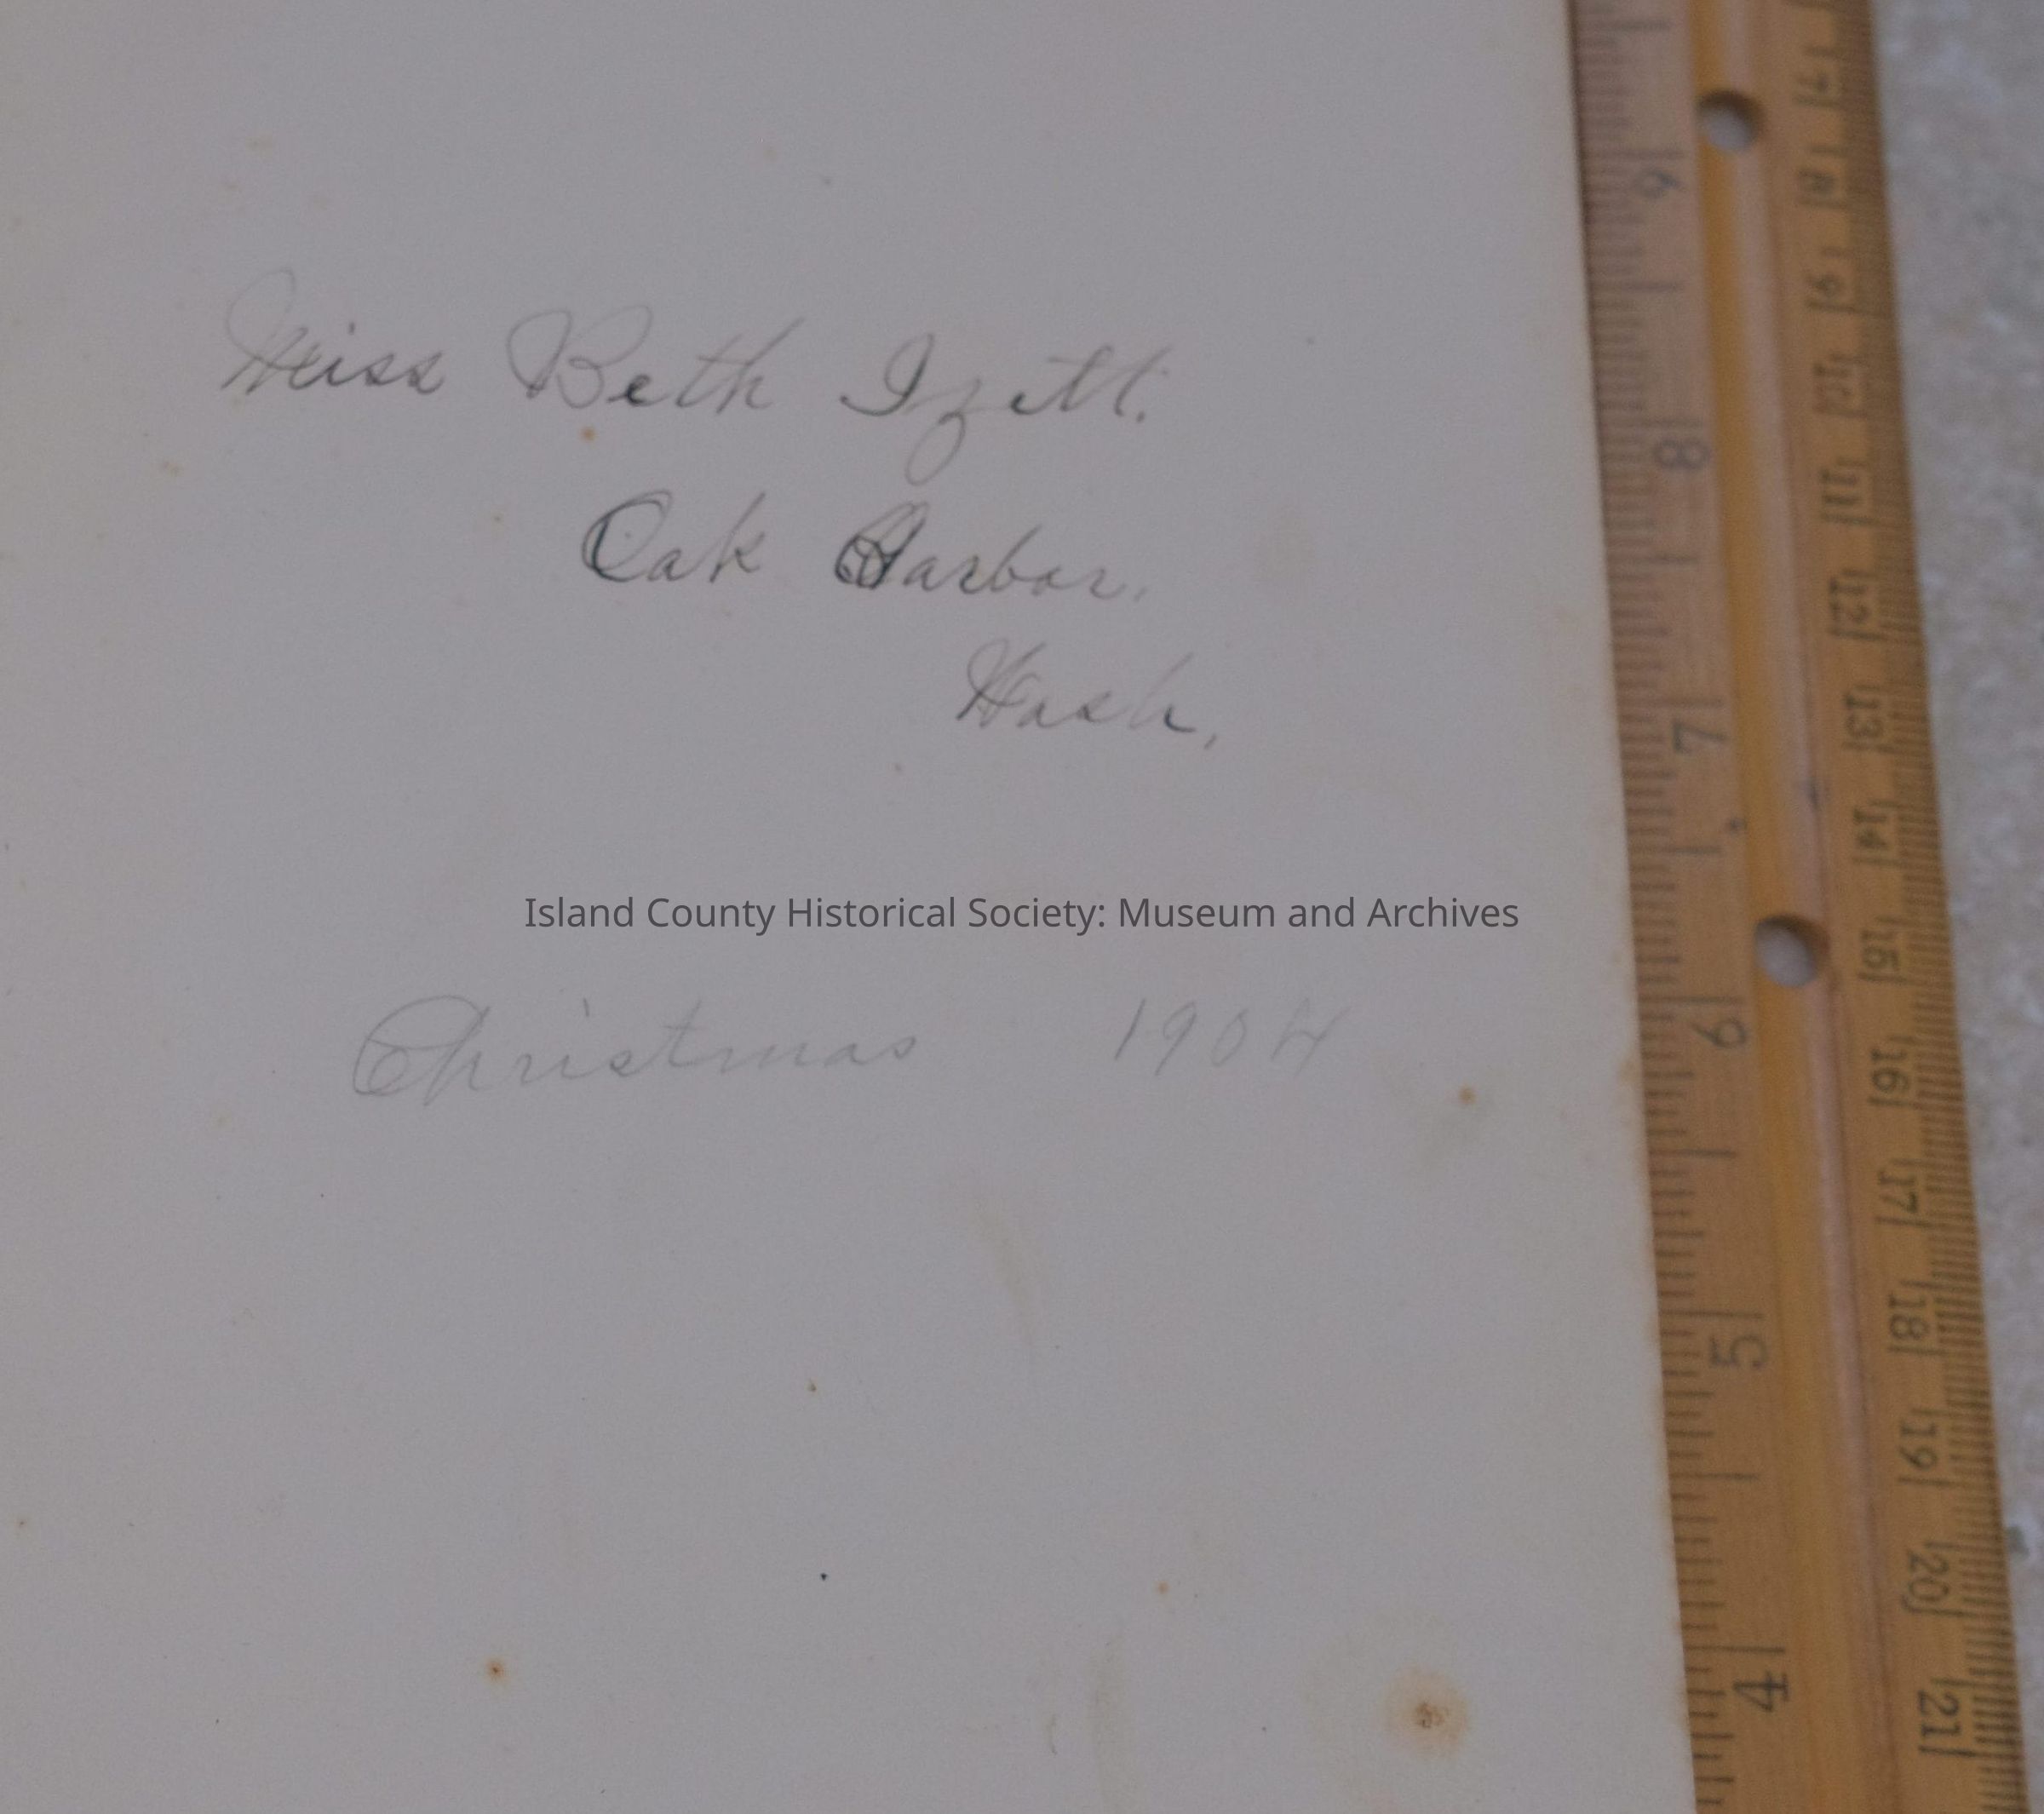 Miss Beth Izett.
Oak Harbor.
Wash.
Island County Historical Society: Museum and Archives
Christmas 1904
9
8
7
6
5
4
7
8
9
10
11
12
13
14
15
16
17
18
19
20
21